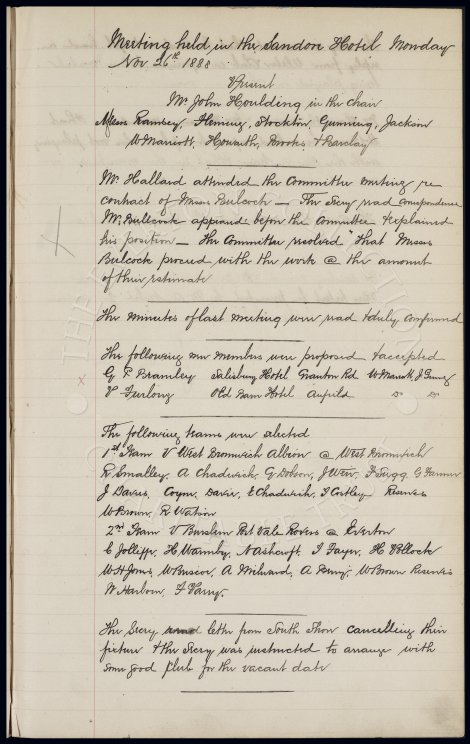 Meeting held in the Sandon Hotel Monday
Nov 26th 1888
Present
Mr John Houlding in the chair
Messrs Ramsey, Fleming, Stockton, Gunning, Jackson
W Marriott, Howarth, Brooks, & Barclay
Mr Halland attended the Committee meeting re
contract of Messrs Bulcock — The Secy read correspondence
Mr Bullcock appeared before the Committee & explained
his position — The Committee resolved "That Messrs
Bulcock proceed with the work @ the amount
of their estimate
The minutes of last meeting were read & duly confirmed
The following new members were proposed & accepted
G P Bramley Salisbury Hotel Granton Rd W Marriott, J
Furlong Old Barn Hotel Anfield do do
The following teams were selected
1st Team V West Bromwich Albion @ West Bromwich
R Smalley, A Chadwick, G Dobson, J Weir, F Sugg, G Farmer
J Davies, Coyne, Davie, E Chadwick, T Costley Reserves
W Brown, R Watson
2nd Team V Burslem Port Vale Rovers @ Everton
C Jolliffe, H Warmby, N Ashcroft, T Fayer, H Pollock
W H Jones, W Briscoe, A Milward, A Berry, W Brown Reserves
W Harbour, F Parry.
The Secy read letter from South Shore cancelling their
fixture & the Secy was instructed to arrange with
some good Club for the vacant date